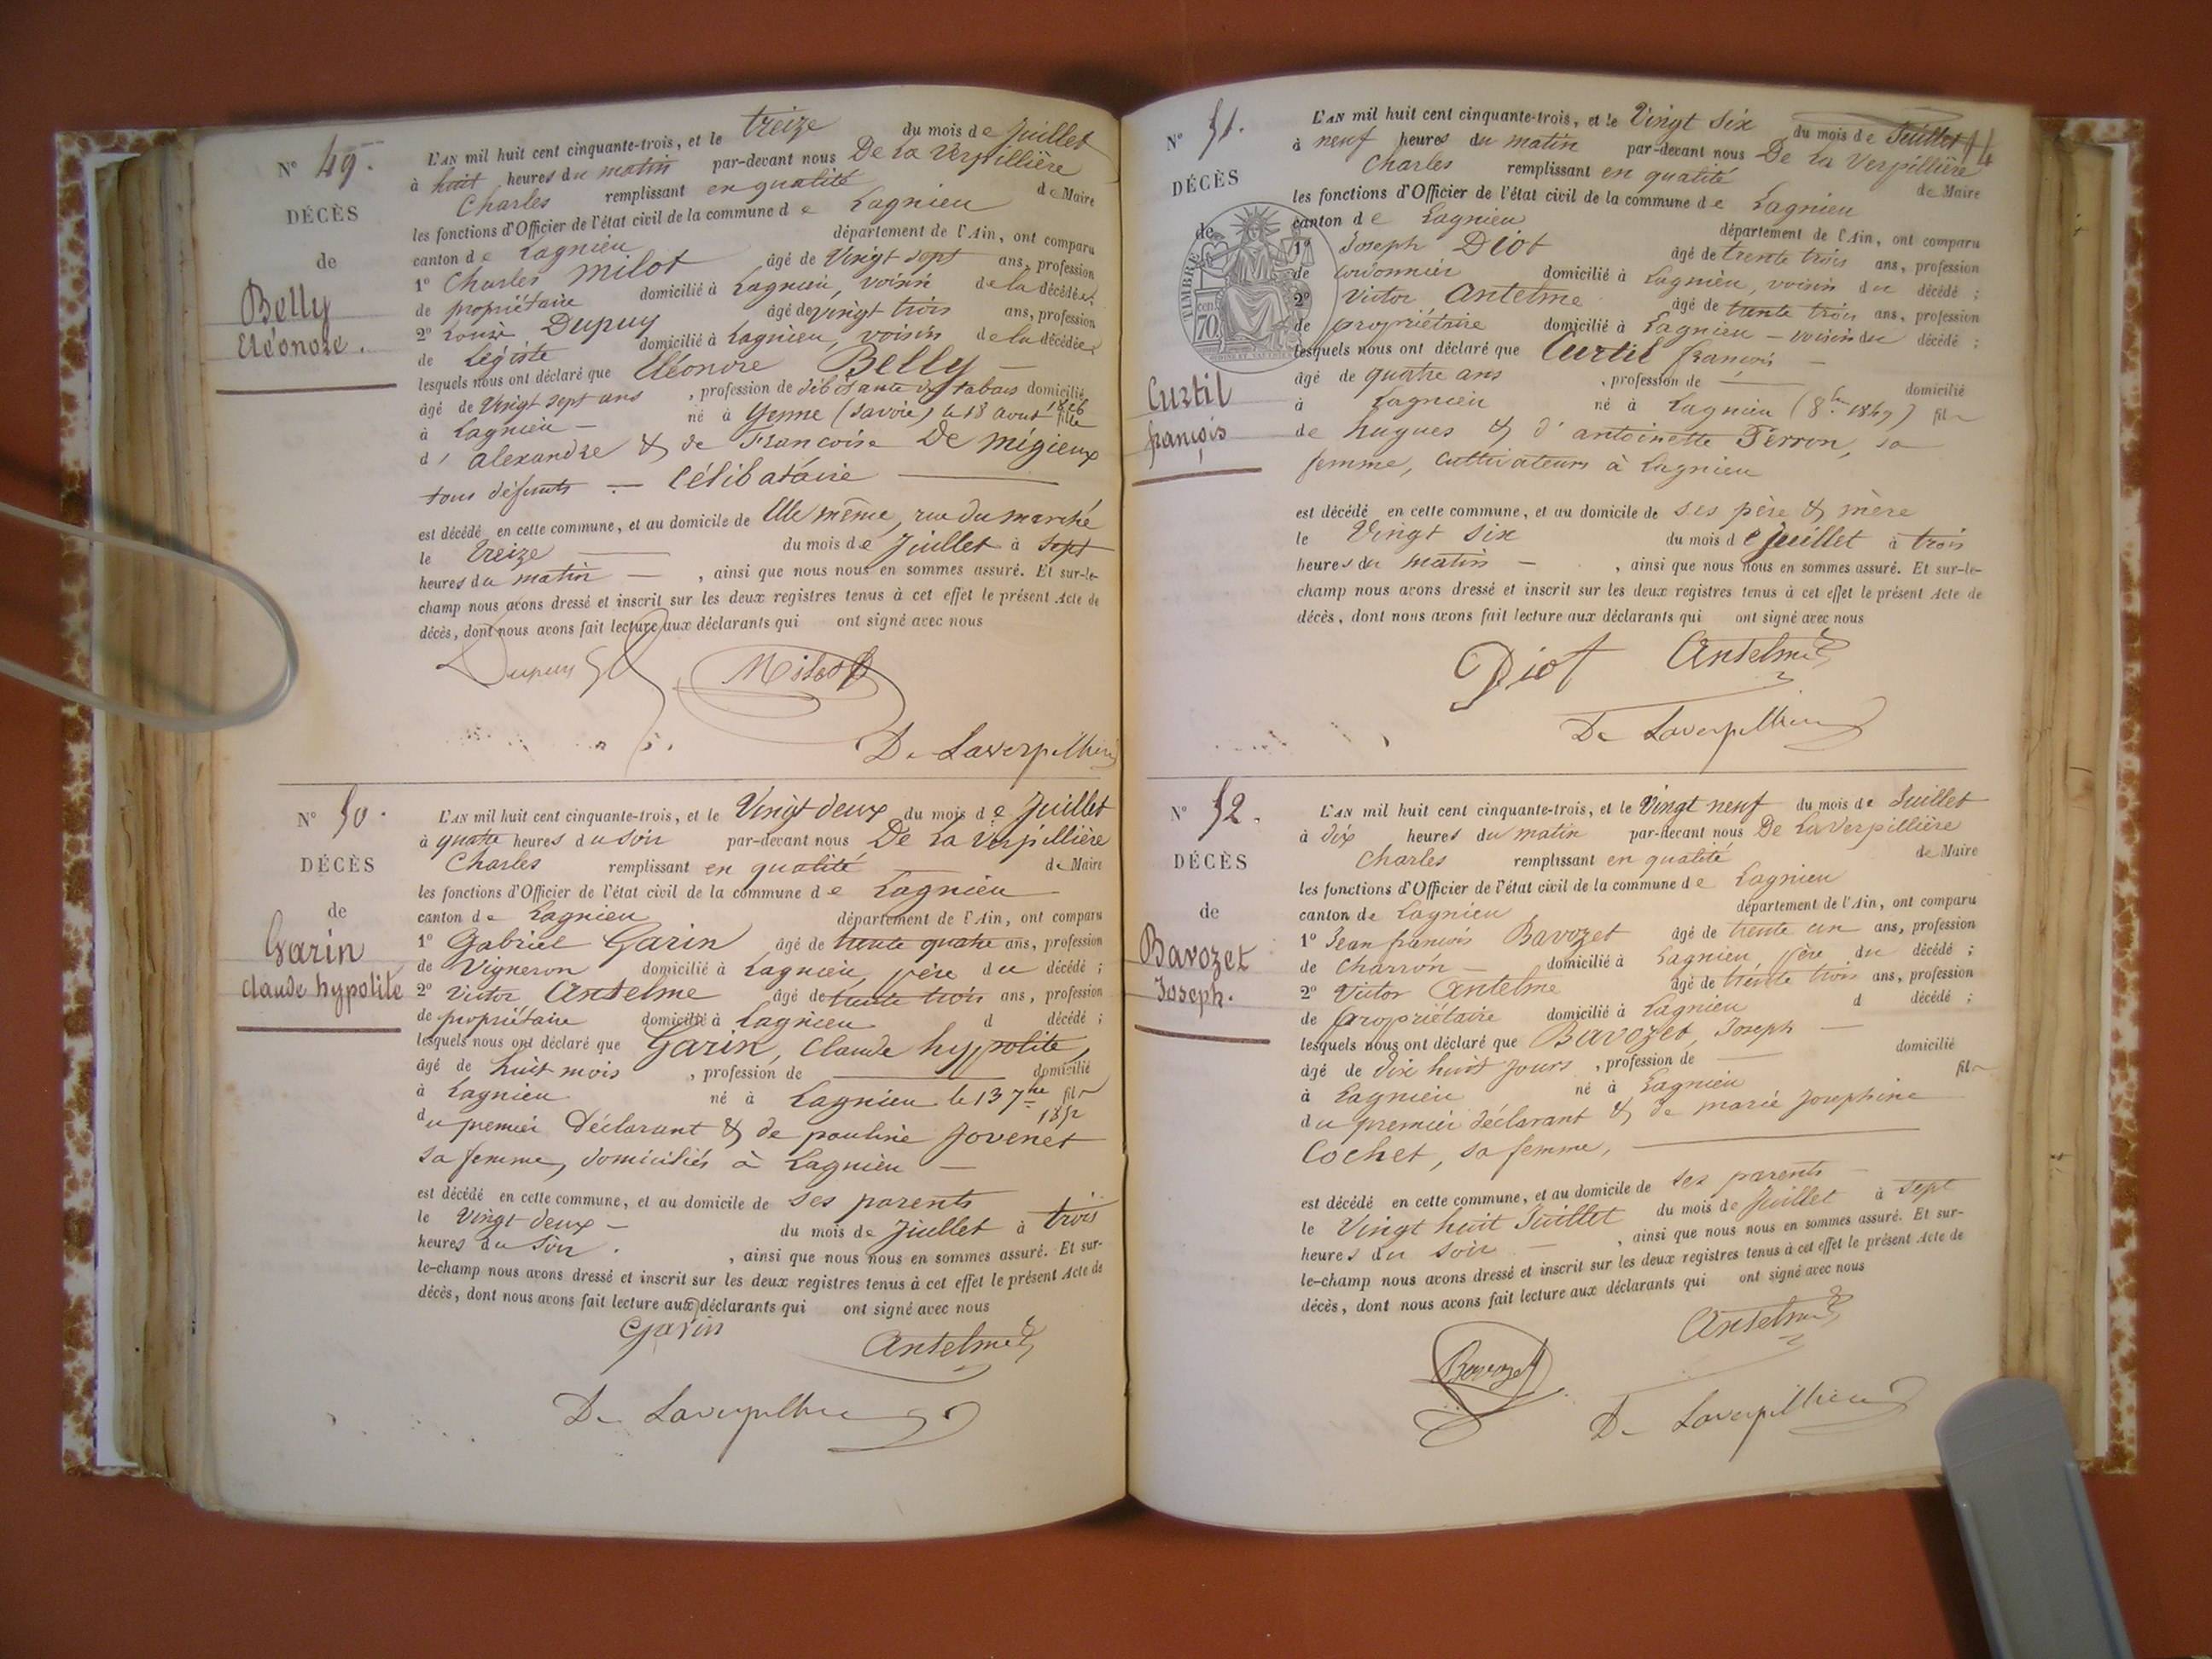 N° 49.
DÉCÈS
de
Belly
Eléonore.
L'AN mil huit cent cinquante-trois, et le treize du mois de Juillet
à huit heures du matin par-devant nous De La Verpillière
Charles remplissant en qualité de Maire
les fonctions d'Officier de l'état civil de la commune de Lagnieu
canton de Lagnieu département de l'Ain, ont comparu
1° Charles Milot âgé de Vingt sept ans, profession
de propriétaire domicilié à Lagnieu, voisin de la décédée;
2° Louis Dupuy âgé de vingt trois ans, profession
de Légiste domicilié à Lagnieu, voisin de la décédée;
lesquels nous ont déclaré que Eléonore Belly —
âgé de Vingt sept ans, profession de débitante de tabacs domicilié
à Lagnieu — né à Yenne (Savoie) le 18 aout 1826 fille
d'alexandre & de Françoise De Mégieux
tous défunts — Célibataire —
est décédé en cette commune, et au domicile de Elle même, rue du marché
le Treize — du mois de Juillet à Sept
heures du matin —, ainsi que nous nous en sommes assuré. Et sur-le-
champ nous avons dressé et inscrit sur les deux registres tenus à cet effet le présent Acte de
décès, dont nous avons fait lecture aux déclarants qui ont signé avec nous
Dupuy Milot
De Laverpillière
N° 50.
DÉCÈS
de
Garin
claude hypolite
L'AN mil huit cent cinquante-trois, et le Vingt deux du mois de Juillet
à quatre heures du soir par-devant nous De La Verpillière
Charles remplissant en qualité de Maire
les fonctions d'Officier de l'état civil de la commune de Lagnieu
canton de Lagnieu département de l'Ain, ont comparu
1° Gabriel Garin âgé de trente quatre ans, profession
de Vigneron domicilié à Lagnieu, père du décédé;
2° Victor Antelme âgé de trente trois ans, profession
de propriétaire domicilié à Lagnieu d décédé;
lesquels nous ont déclaré que Garin, Claude hyppolite,
âgé de huit mois, profession de — domicilié
à Lagnieu né à Lagnieu le 13 7bre 1852 fils
du premier Déclarant & de pauline Jovenet
sa femme, domiciliés à Lagnieu —
est décédé en cette commune, et au domicile de ses parents
le Vingt deux — du mois de Juillet à trois
heures du Soir., ainsi que nous nous en sommes assuré. Et sur-
le-champ nous avons dressé et inscrit sur les deux registres tenus à cet effet le présent Acte de
décès, dont nous avons fait lecture aux déclarants qui ont signé avec nous
Garin Antelme
De Laverpillière
44
N° 51.
DÉCÈS
de
TIMBRE
70 cent
Curtil
françois
L'AN mil huit cent cinquante-trois, et le Vingt Six du mois de Juillet
à neuf heures du matin par-devant nous De La Verpillière
Charles remplissant en qualité de Maire
les fonctions d'Officier de l'état civil de la commune de Lagnieu
canton de Lagnieu département de l'Ain, ont comparu
1° Joseph Diot âgé de trente trois ans, profession
de cordonnier domicilié à Lagnieu, voisin du décédé;
2° Victor Antelme âgé de trente trois ans, profession
de propriétaire domicilié à Lagnieu — voisin du décédé;
lesquels nous ont déclaré que Curtil françois —
âgé de quatre ans, profession de — domicilié
à Lagnieu né à Lagnieu (8bre 1849) fils
de hugues & d'antoinette Perron, sa
femme, Cultivateurs à Lagnieu
est décédé en cette commune, et au domicile de ses père & mère
le Vingt Six du mois de Juillet à trois
heures du matin —, ainsi que nous nous en sommes assuré. Et sur-le-
champ nous avons dressé et inscrit sur les deux registres tenus à cet effet le présent Acte de
décès, dont nous avons fait lecture aux déclarants qui ont signé avec nous
Diot Antelme
De Laverpillière
N° 52.
DÉCÈS
de
Bavozet
Joseph.
L'AN mil huit cent cinquante-trois, et le Vingt neuf du mois de Juillet
à dix heures du matin par-devant nous De La Verpillière
Charles remplissant en qualité de Maire
les fonctions d'Officier de l'état civil de la commune de Lagnieu
canton de Lagnieu département de l'Ain, ont comparu
1° Jean françois Bavozet âgé de trente un ans, profession
de Charron — domicilié à Lagnieu, père du décédé;
2° Victor Antelme âgé de trente trois ans, profession
de propriétaire domicilié à Lagnieu d décédé;
lesquels nous ont déclaré que Bavozet, Joseph —
âgé de dix huit jours, profession de — domicilié
à Lagnieu né à Lagnieu fils
du premier déclarant & de marie Josephine
Cochet, sa femme, —
est décédé en cette commune, et au domicile de ses parents —
le Vingt huit Juillet du mois de Juillet à sept
heures du soir —, ainsi que nous nous en sommes assuré. Et sur-
le-champ nous avons dressé et inscrit sur les deux registres tenus à cet effet le présent Acte de
décès, dont nous avons fait lecture aux déclarants qui ont signé avec nous
Bavozet Antelme
De Laverpillière